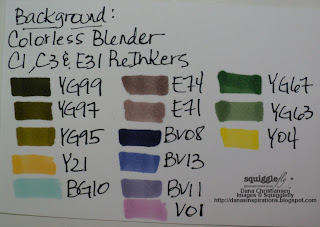 Background:
Colorless Blender
C1, C3 & E31 ReInkers
YG99 E74 YG67
YG97 E71 YG63
YG95 BV08 Y04
Y21 BV13
BG10 BV11
V01
squigglefly
Dana Christiansen
Images © Squigglefly
http://danasinspirations.blogspot.com